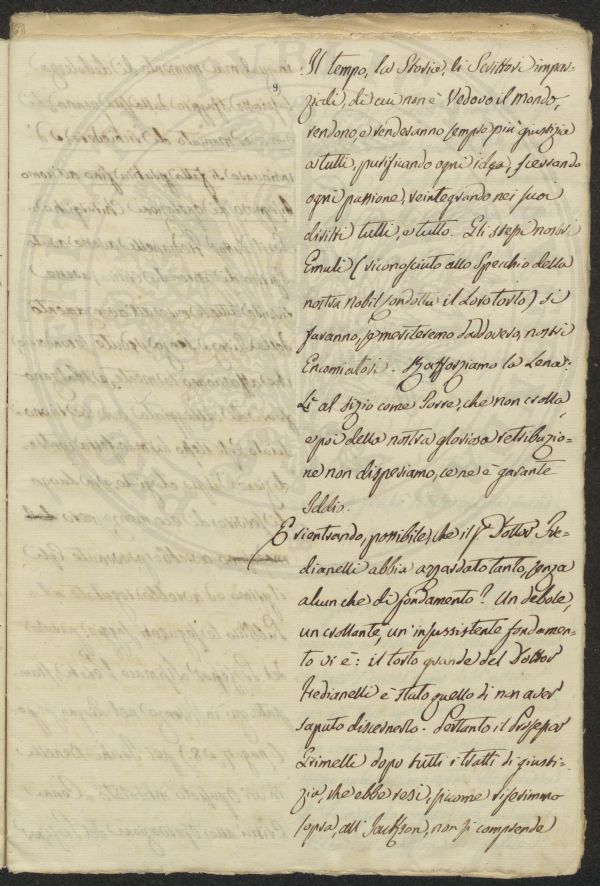 Il tempo, la Storia, li Scrittori impar-
ziali, di cui non è Vedovo il Mondo,
rendono, e renderanno sempre più giustizia
a tutti, purificando ogni idea, scevrando
ogni passione, reintegrando nei suoi
diritti tutti, e tutto. Gli stessi nostri
Emuli (riconosciuto allo Specchio della
nostra nobil condotta il loro torto) si
faranno, se meriteremo daddovero, nostri
Encomiatori. Rafforziamo la Lena:
al dizio come Torre, che non crolla,
e poi della nostra gloriosa retribuzio-
ne non disperiamo, ce ne è garante
Iddio.
E rientrando, possibile, che il Sr. Dottor Fre-
dianelli abbia azzardato tanto, senza
alcun che di fondamento? Un debole,
un crollante, un insussistente fondamen-
to vi è: il torto grande del Dottor
Fredianelli è stato quello di non aver
saputo discernerlo. Pertanto il Professor
Grimelli dopo tutti i tratti di giusti-
zia, che ebbe resi, siccome riferimmo
sopra, all' Jackson, non si comprende